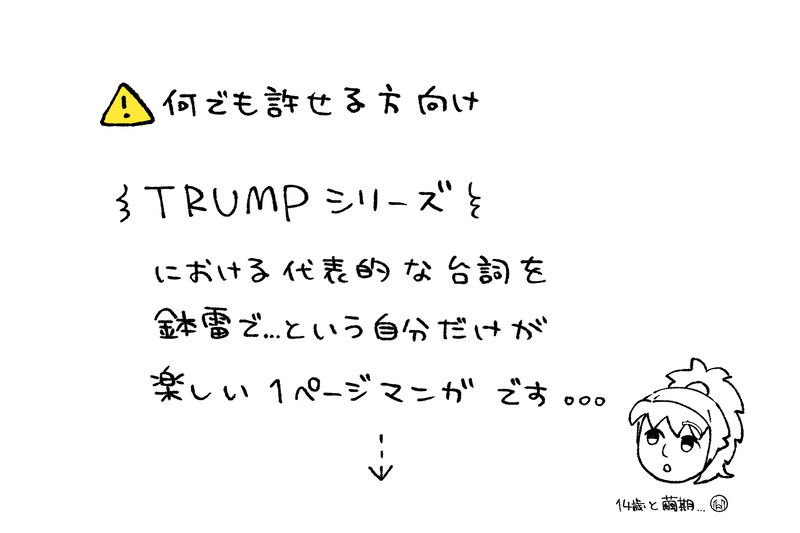 何でも許せる方向け
TRUMPシリーズ
における代表的な台詞を
鉢雷で…という自分だけが
楽しい1ページマンガです...
14歳と繭期…